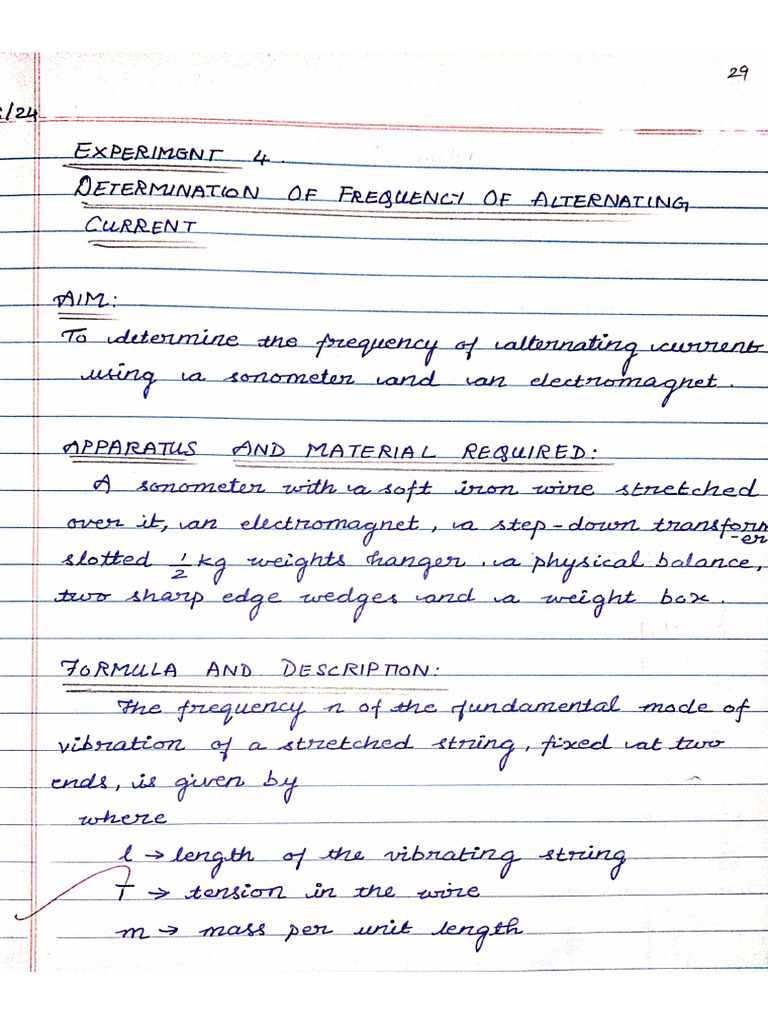 29
/24
EXPERIMENT 4.
DETERMINATION OF FREQUENCY OF ALTERNATING
CURRENT
AIM:
To determine the frequency of alternating current
using a sonometer and an electromagnet.
APPARATUS AND MATERIAL REQUIRED:
A sonometer with a soft iron wire stretched
over it, an electromagnet, a step-down transform
-er
slotted 1/2 kg weights hanger, a physical balance,
two sharp edge wedges and a weight box.
FORMULA AND DESCRIPTION:
The frequency n of the fundamental mode of
vibration of a stretched string, fixed at two
ends, is given by
where
l → length of the vibrating string
T → tension in the wire
m → mass per unit length